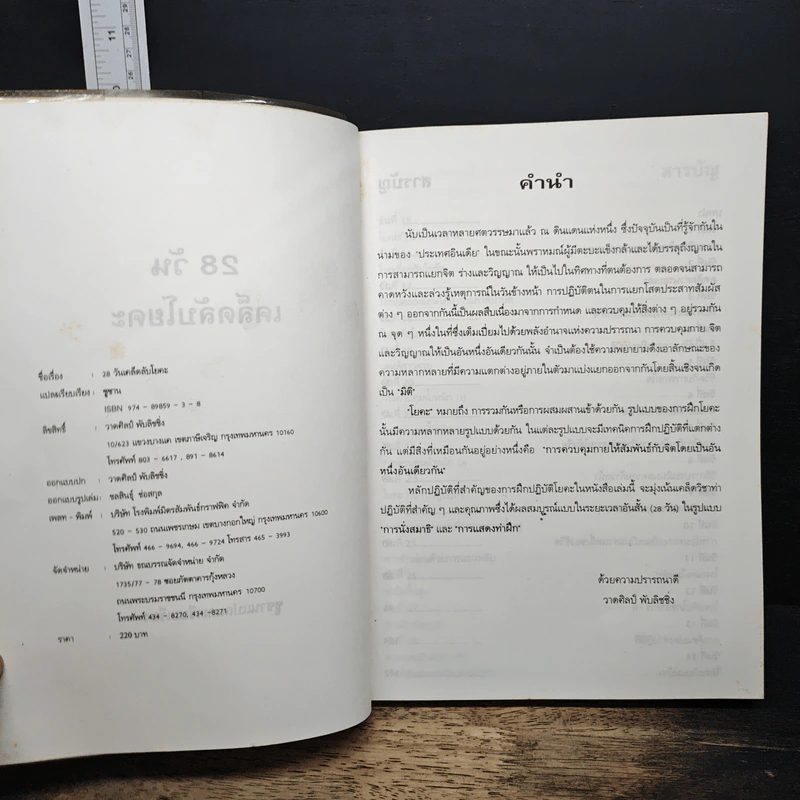 11
ชื่อเรื่อง : 28 วันเคล็ดลับโยคะ
แปลและเรียบเรียง : ชูชาน
ISBN 974 - 89859 - 3 - 8
ลิขสิทธิ์ : วาดศิลป์ พับลิชชิ่ง
10/623 แขวงบางแค เขตภาษีเจริญ กรุงเทพมหานคร 10160
โทรศัพท์ 803 - 6617 , 891 - 8614
ออกแบบปก : วาดศิลป์ พับลิชชิ่ง
ออกแบบรูปเล่ม : ชลสินธุ์ ช่อสกุล
เพลท - พิมพ์ : บริษัท โรงพิมพ์มิตรสัมพันธ์กราฟฟิค จำกัด
520 - 530 ถนนเพชรเกษม เขตบางกอกใหญ่ กรุงเทพมหานคร 10600
โทรศัพท์ 466 - 9694, 466 - 9724 โทรสาร 465 - 3993
จัดจำหน่าย : บริษัท ธณบรรณจัดจำหน่าย จำกัด
1735/77 - 78 ซอยภัตตาคารกุ้งหลวง
ถนนพระบรมราชชนนี กรุงเทพมหานคร 10700
โทรศัพท์ 434 - 8270, 434 -8271
ราคา : 220 บาท
คำนำ
นับเป็นเวลาหลายศตวรรษมาแล้ว ณ ดินแดนแห่งหนึ่ง ซึ่งปัจจุบันเป็นที่รู้จักกันใน
นามของ "ประเทศอินเดีย" ในขณะนั้นพราหมณ์ผู้มีตะบะแข็งกล้าและได้บรรลุถึงญาณใน
การสามารถแยกจิต ร่างและวิญญาณ ให้เป็นไปในทิศทางที่ตนต้องการ ตลอดจนสามารถ
คาดหวังและล่วงรู้เหตุการณ์ในวันข้างหน้า การปฏิบัติตนในการแยกโสตประสาทสัมผัส
ต่าง ๆ ออกจากกันนี้เป็นผลสืบเนื่องมาจากการกำหนด และควบคุมให้สิ่งต่าง ๆ อยู่รวมกัน
ณ จุด ๆ หนึ่งในที่ซึ่งเต็มเปี่ยมไปด้วยพลังอำนาจแห่งความปรารถนา การควบคุมกาย จิต
และวิญญาณให้เป็นอันหนึ่งอันเดียวกันนั้น จำเป็นต้องใช้ความพยายามดึงเอาลักษณะของ
ความหลากหลายที่มีความแตกต่างอยู่ภายในตัวมาแบ่งแยกออกจากกันโดยสิ้นเชิงจนเกิด
เป็น "มิติ"
"โยคะ" หมายถึง การรวมกันหรือการผสมผสานเข้าด้วยกัน รูปแบบของการฝึกโยคะ
นั้นมีความหลากหลายรูปแบบด้วยกัน ในแต่ละรูปแบบจะมีเทคนิคการฝึกปฏิบัติที่แตกต่าง
กัน แต่มีสิ่งที่เหมือนกันอยู่อย่างหนึ่งคือ "การควบคุมกายให้สัมพันธ์กับจิตโดยเป็นอัน
หนึ่งอันเดียวกัน"
หลักปฏิบัติที่สำคัญของการฝึกปฏิบัติโยคะในหนังสือเล่มนี้ จะมุ่งเน้นเคล็ดวิชาท่า
ปฏิบัติที่สำคัญ ๆ และคุณภาพซึ่งได้ผลสมบูรณ์แบบในระยะเวลาอันสั้น (28 วัน) ในรูปแบบ
"การนั่งสมาธิ" และ "การแสดงท่าฝึก"
ด้วยความปรารถนาดี
วาดศิลป์ พับลิชชิ่ง